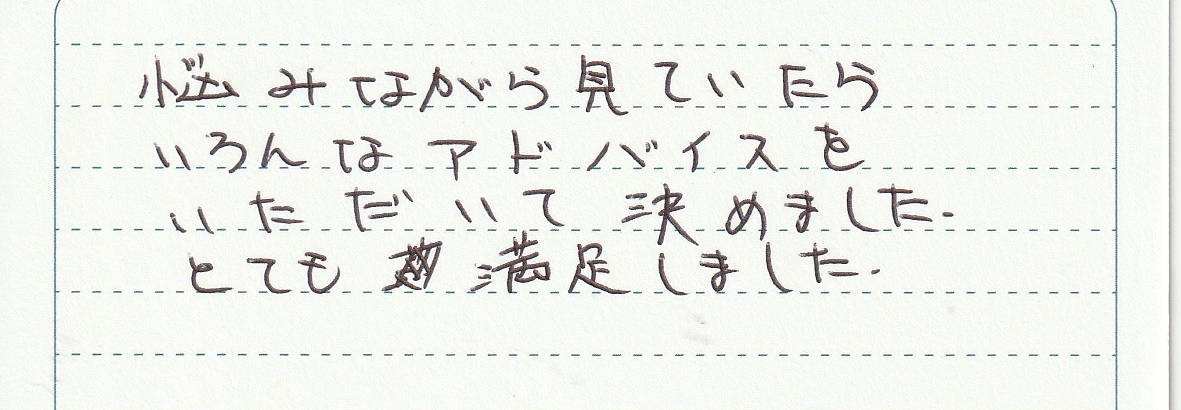 悩みながら見ていたら
いろんなアドバイスを
いただいて決めました.
とても満足しました.